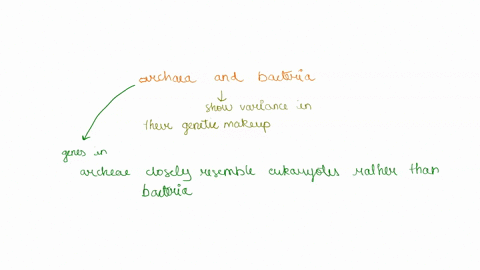 archaea and bacteria
show variance in
their genetic makeup
genes in
archeae closely resemble eukaryotes rather than
bacteria